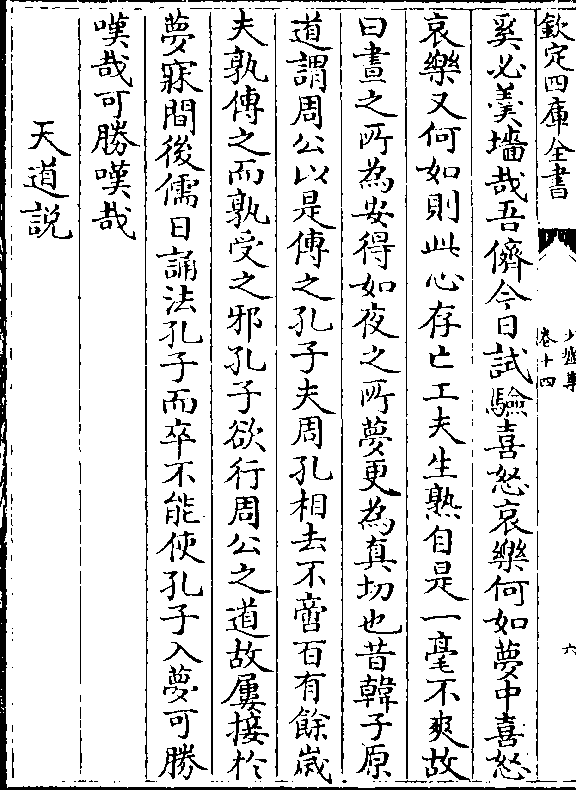 欽定四庫全書
卷十四
六
奚必羹墻哉吾儕今日試驗喜怒哀樂何如夢中喜怒
哀樂又何如則此心存亡工夫生熟自是一毫不爽故
曰晝之所為安得如夜之所夢更為真切也昔韓子原
道謂周公以是傳之孔子夫周孔相去不啻百有餘嵗
夫孰傳之而孰受之邪孔子欲行周公之道故屢接於
夢寐間後儒日誦法孔子而卒不能使孔子入夢可勝
嘆哉可勝嘆哉
天道説